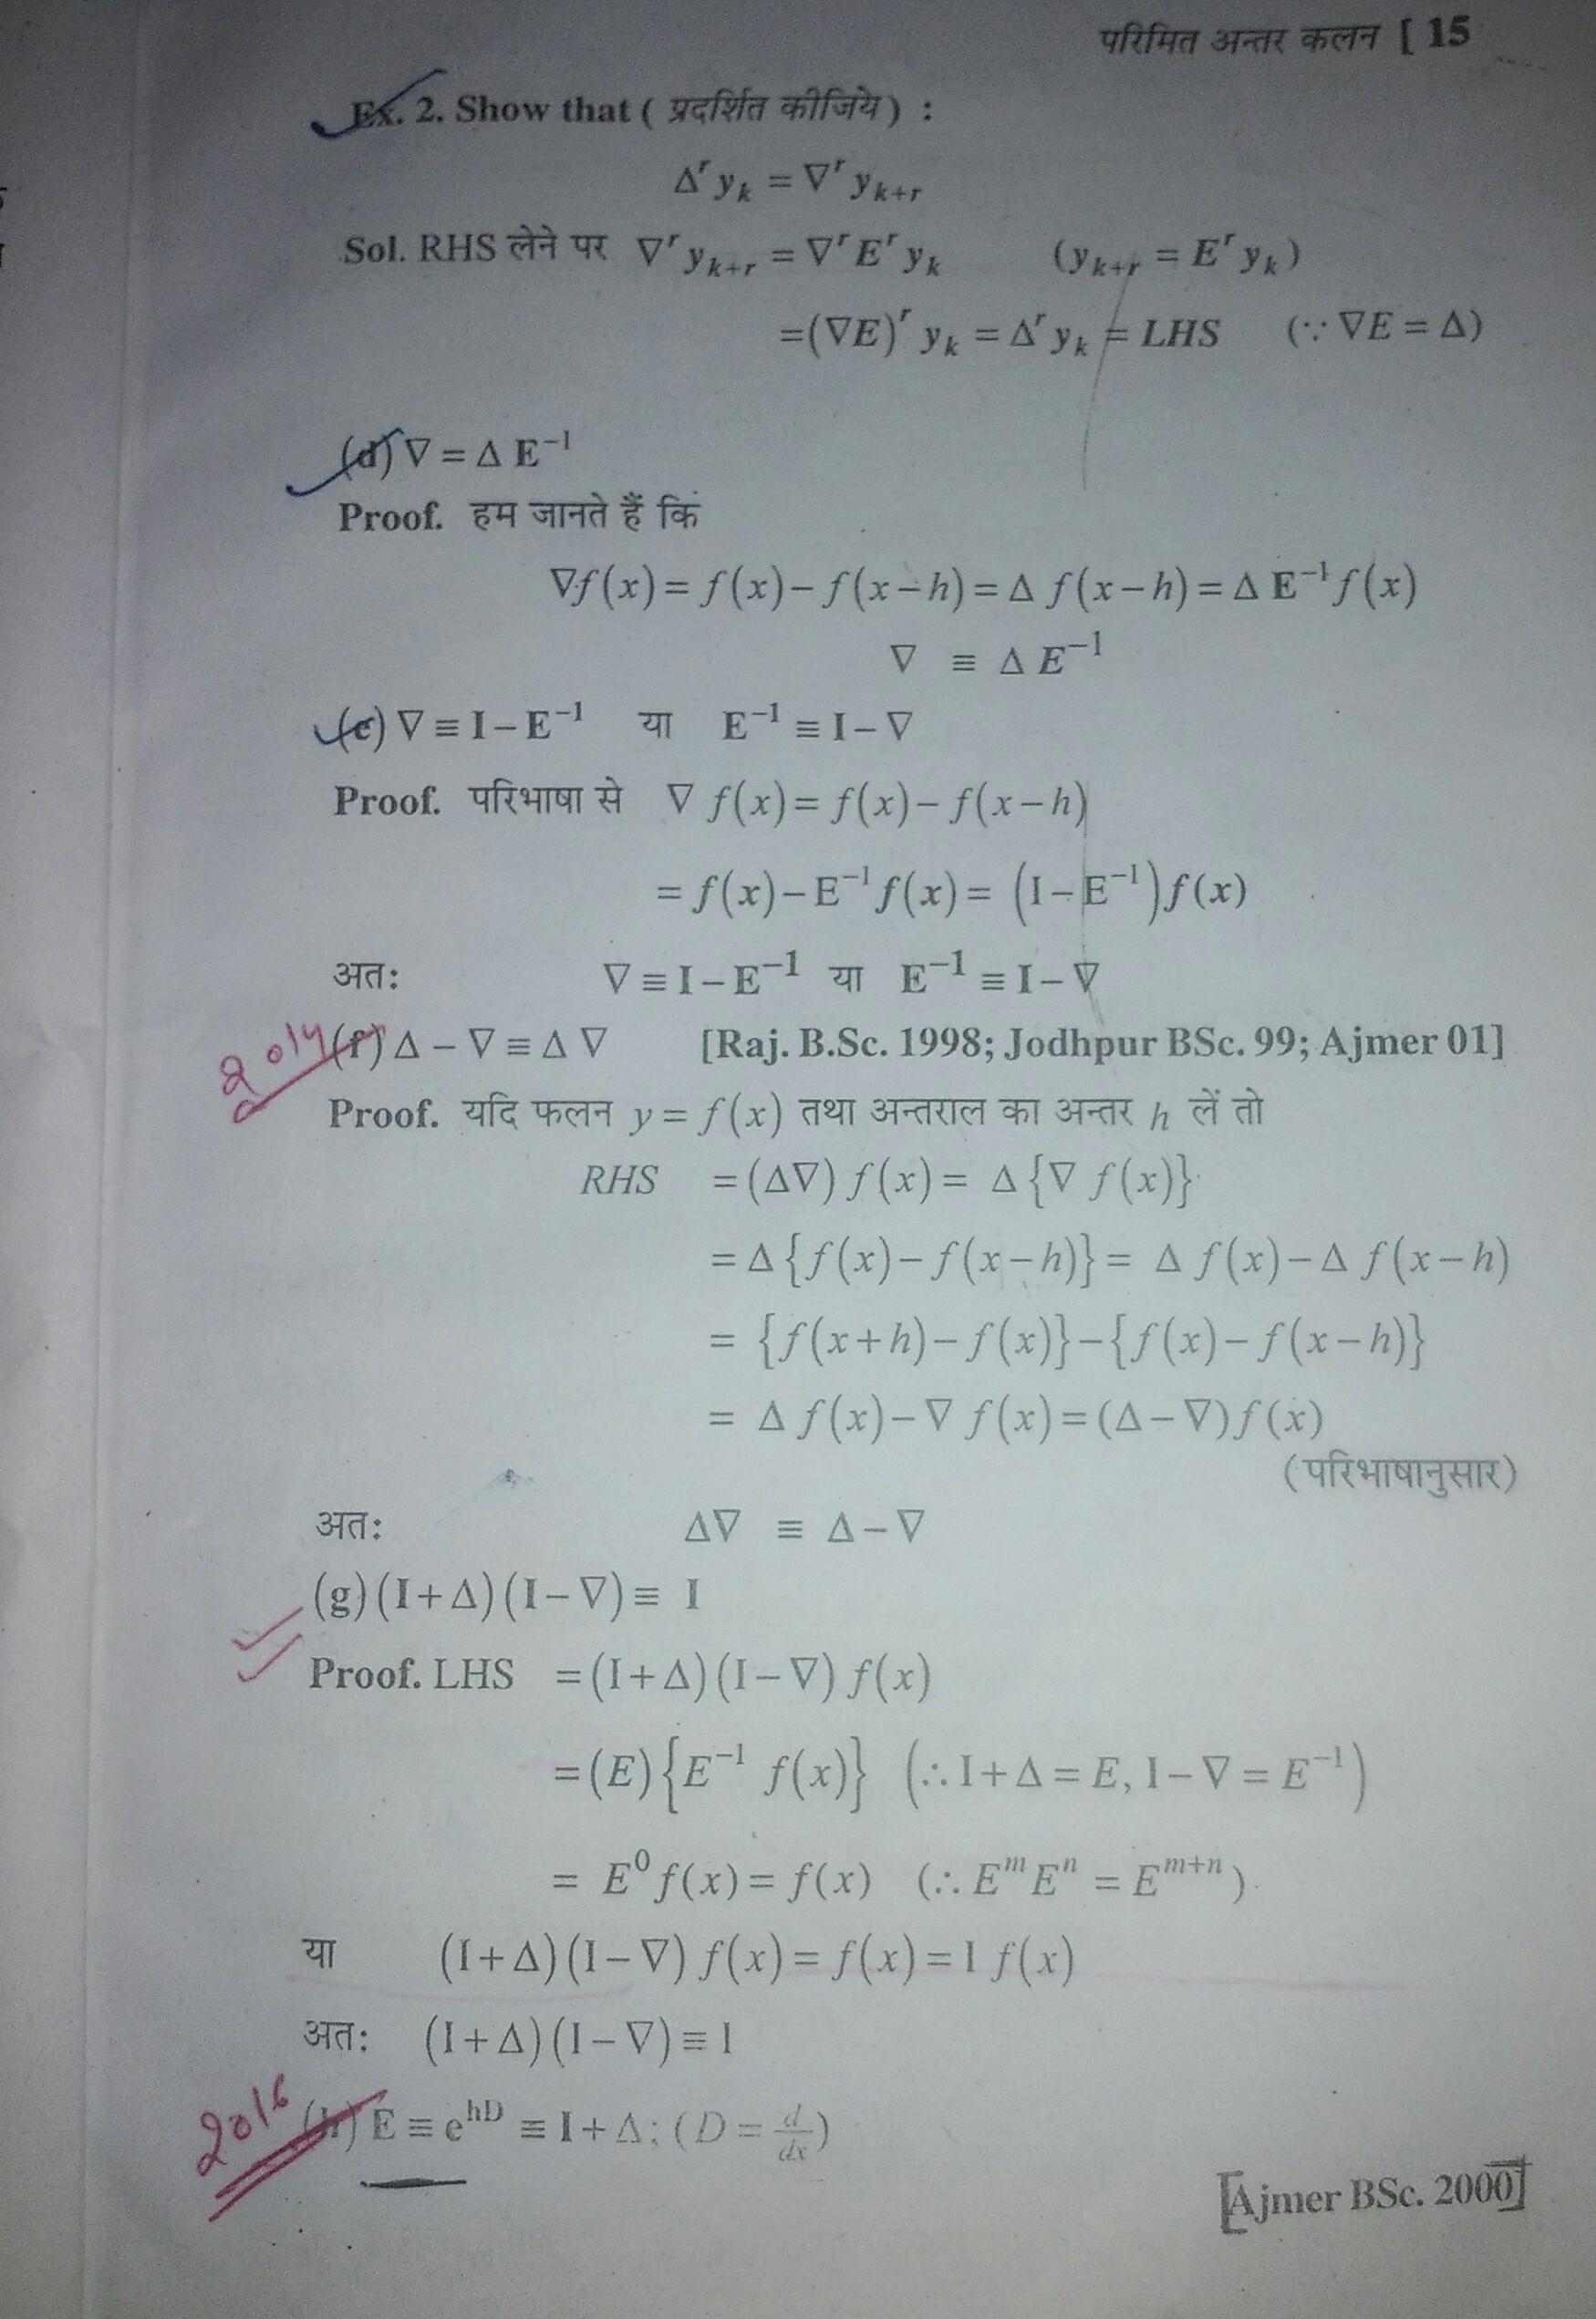 परिमित अन्तर कलन [ 15
Ex. 2. Show that ( प्रदर्शित कीजिये ) :
Δʳ yₖ = ∇ʳ yₖ₊ᵣ
Sol. RHS लेने पर ∇ʳ yₖ₊ᵣ = ∇ʳ Eʳ yₖ (yₖ₊ᵣ = Eʳ yₖ)
=(∇E)ʳ yₖ = Δʳ yₖ = LHS (∵ ∇E = Δ)
(d) ∇ = Δ E⁻¹
Proof. हम जानते हैं कि
∇f(x) = f(x) – f(x – h) = Δ f(x – h) = Δ E⁻¹ f(x)
∇ ≡ Δ E⁻¹
(e) ∇ ≡ I – E⁻¹ या E⁻¹ ≡ I – ∇
Proof. परिभाषा से ∇ f(x) = f(x) – f(x – h)
= f(x) – E⁻¹ f(x) = (I – E⁻¹) f(x)
अतः ∇ ≡ I – E⁻¹ या E⁻¹ ≡ I – ∇
2014 (f) Δ – ∇ ≡ Δ ∇ [Raj. B.Sc. 1998; Jodhpur BSc. 99; Ajmer 01]
Proof. यदि फलन y = f(x) तथा अन्तराल का अन्तर h लें तो
RHS = (Δ∇) f(x) = Δ{∇ f(x)}
= Δ{f(x) – f(x – h)} = Δ f(x) – Δ f(x – h)
= {f(x + h) – f(x)} – {f(x) – f(x – h)}
= Δ f(x) – ∇ f(x) = (Δ – ∇) f(x)
(परिभाषानुसार)
अतः Δ∇ ≡ Δ – ∇
(g) (I + Δ)(I – ∇) ≡ I
Proof. LHS = (I + Δ)(I – ∇) f(x)
= (E){E⁻¹ f(x)} (∴ I + Δ = E, I – ∇ = E⁻¹)
= E⁰ f(x) = f(x) (∴ Eᵐ Eⁿ = Eᵐ⁺ⁿ)
या (I + Δ)(I – ∇) f(x) = f(x) = I f(x)
अतः (I + Δ)(I – ∇) ≡ I
2016 (h) E ≡ eʰᴰ ≡ I + Δ; (D = d/dx)
[Ajmer BSc. 2000]